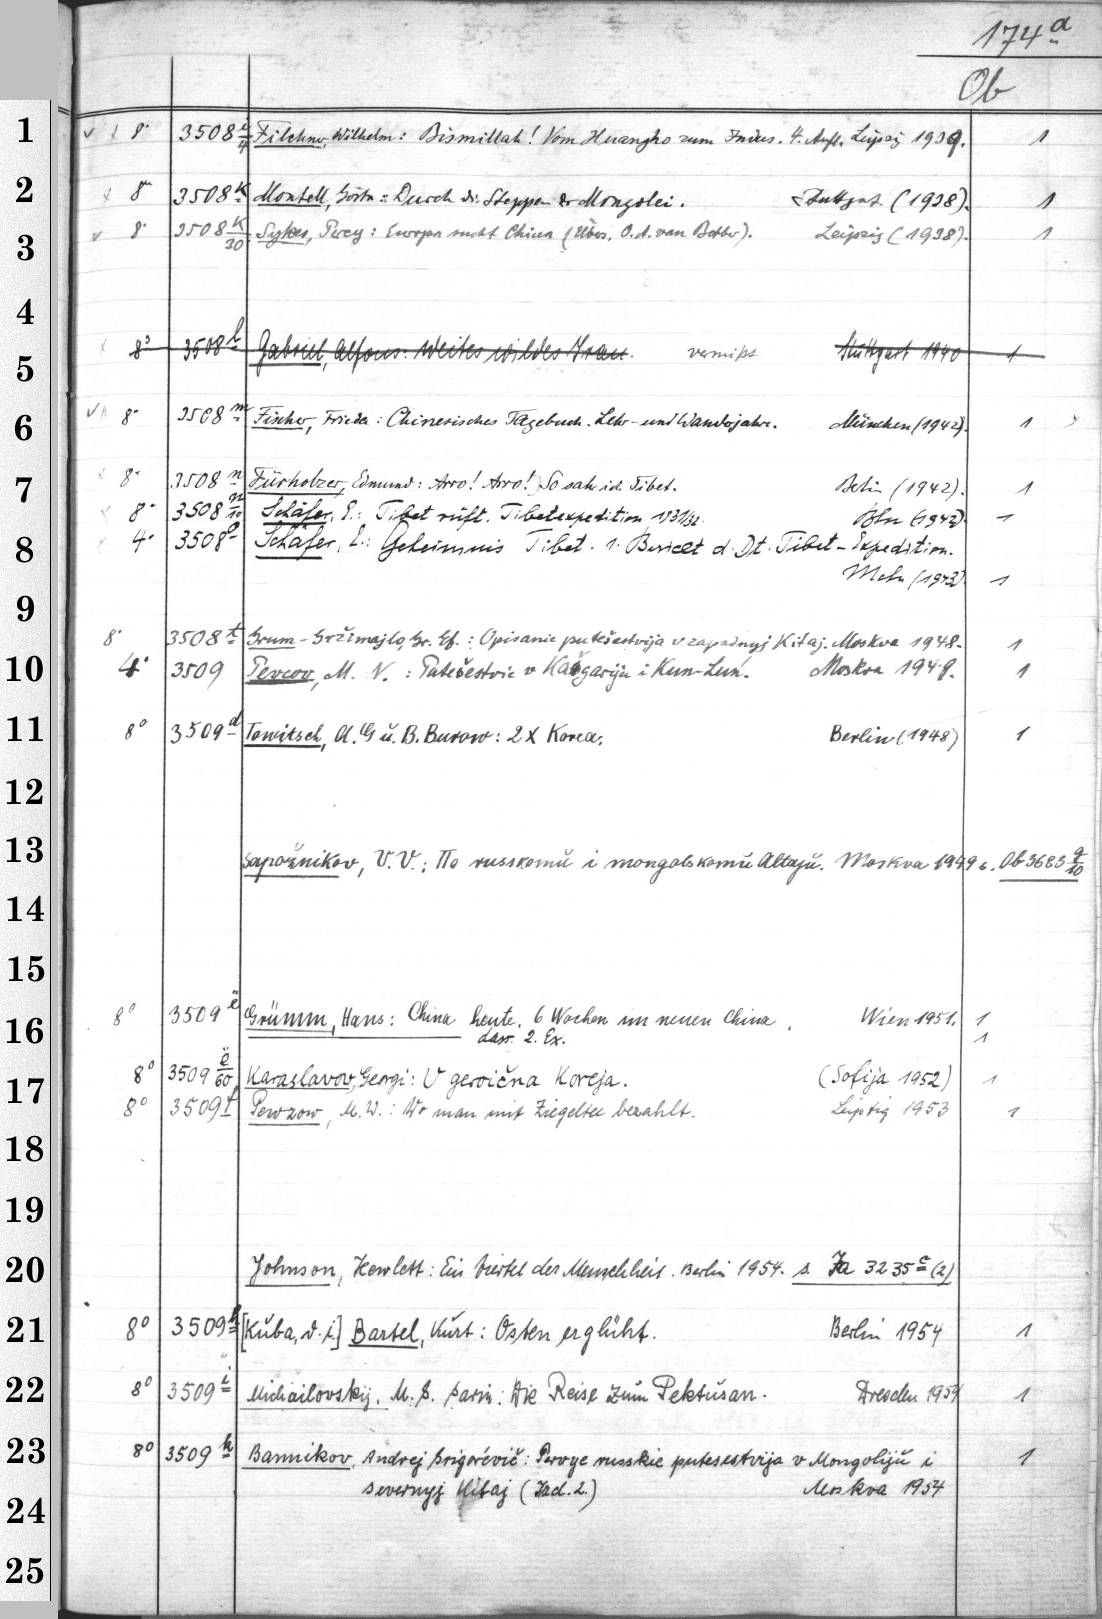 174a
Ob
1
8° 3508 k/4 Filchner, Wilhelm: Bismillah! Vom Huangho zum Indus. 4. Aufl. Leipzig 1939. 1
2
8° 3508 k Montell, Gösta: Durch die Steppen der Mongolei. Stuttgart (1938). 1
3
8° 3508 k/30 Sykes, Percy: Europa sucht China (Übers. O. A. van Bebber). Leipzig (1938). 1
4
5
8° 3508 l Gabriel, Alfons: Weites wildes Iran. vermißt Stuttgart 1940 1
6
8° 3508 m Fischer, Frieda: Chinesisches Tagebuch. Lehr- und Wanderjahre. München (1942). 1
7
8° 3508 n Fürholzer, Edmund: Arro! Arro! So sah ich Tibet. Berlin (1942). 1
8° 3508 n/10 Schäfer, E.: Tibet ruft. Tibetexpedition 1931/32. Bln (1942). 1
8
4° 3508 Schäfer, E.: Geheimnis Tibet. 1. Bericht d. Dt. Tibet-Expedition.
Mchn (1943). 1
9
8° 3508 t Grum-Gržimajlo, Gr. Ef.: Opisanie putešestvija v zapadnyj Kitaj. Moskva 1948. 1
10
4° 3509 Pevcov, M. V.: Putešestvie v Kašgariju i Kun-Luń. Moskva 1949. 1
11
8° 3509 d Tawitsch, A. G u. B. Burow: 2 x Korea. Berlin (1948) 1
12
13
Sapožnikov, V. V.: Po russkomu i mongolskomu Altaju. Moskva 1949 s. Ob 3683 q/10
14
15
16
8° 3509 ë Grümm, Hans: China heute. 6 Wochen im neuen China. Wien 1951. 1
dass. 2. Ex. 1
17
8° 3509 ë/60 Karaslavov, Georgi: V geroična Koreja. (Sofija 1952) 1
8° 3509 f Pewzow, M. W.: Wo man mit Ziegeltee bezahlt. Leipzig 1953 1
18
19
20
Johnson, Hewlett: Ein Viertel der Menschheit. Berlin 1954. s. Ja 3235 c (2)
21
8° 3509 h [Kuba, d. i.] Bartel, Kurt: Osten erglüht. Berlin 1954 1
22
8° 3509 i Michailovskij, M. g. garin: Die Reise zum Pektusan. Dresden 1954 1
23
8° 3509 k Bannikov, Andrej Grigorévič: Pervye russkie putesestvija v Mongoliju i 1
severnyj Kitaj (Izd. 2.) Moskva 1954
24
25